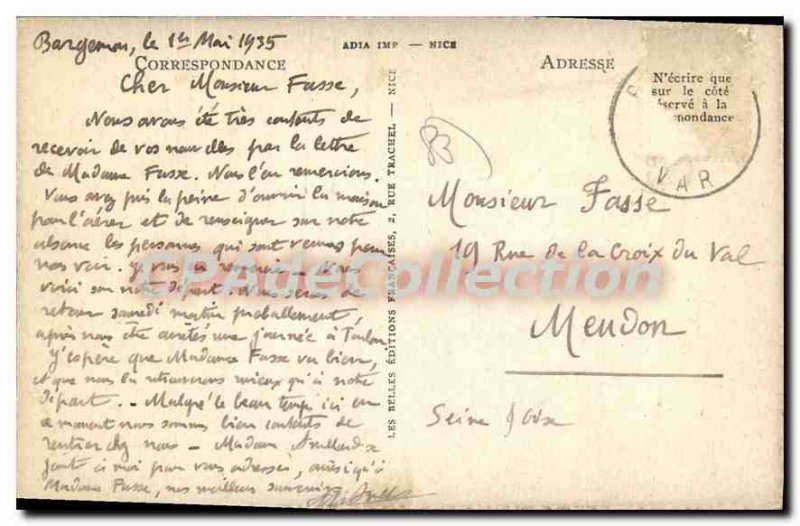 Bargemon, le 1er Mai 1935
ADIA IMP — NICE
CORRESPONDANCE
ADRESSE
N'écrire que
sur le côté
éservé à la
pondance
VAR
Cher Monsieur Fasse,
Nous avons été très contents de
recevoir de vos nouvelles par la lettre
de Madame Fasse. Nous l'en remercions.
Vous avez pris la peine d'ouvrir la maison
pour l'aérer et de renseigner sur notre
absence les personnes qui sont venues pour
nous voir. Je vous en remercie. Nous
voici sur notre départ. Nous serons de
retour samedi matin probablement,
après nous être arrêtés une journée à Toulon.
J'espère que Madame Fasse va bien,
et que nous la retrouverons mieux qu'à notre
départ. - Malgré le beau temps ici en
ce moment nous sommes bien contents de
rentrer chez nous - Madame
joint à moi pour vous adresser, ainsi qu'à
Madame Fasse, nos meilleurs souvenirs
LES BELLES ÉDITIONS FRANÇAISES, 2, RUE TRACHEL — NICE
83
Monsieur Fasse
19 Rue de la Croix du Val
Meudon
Seine & Oise
CPADeCollection